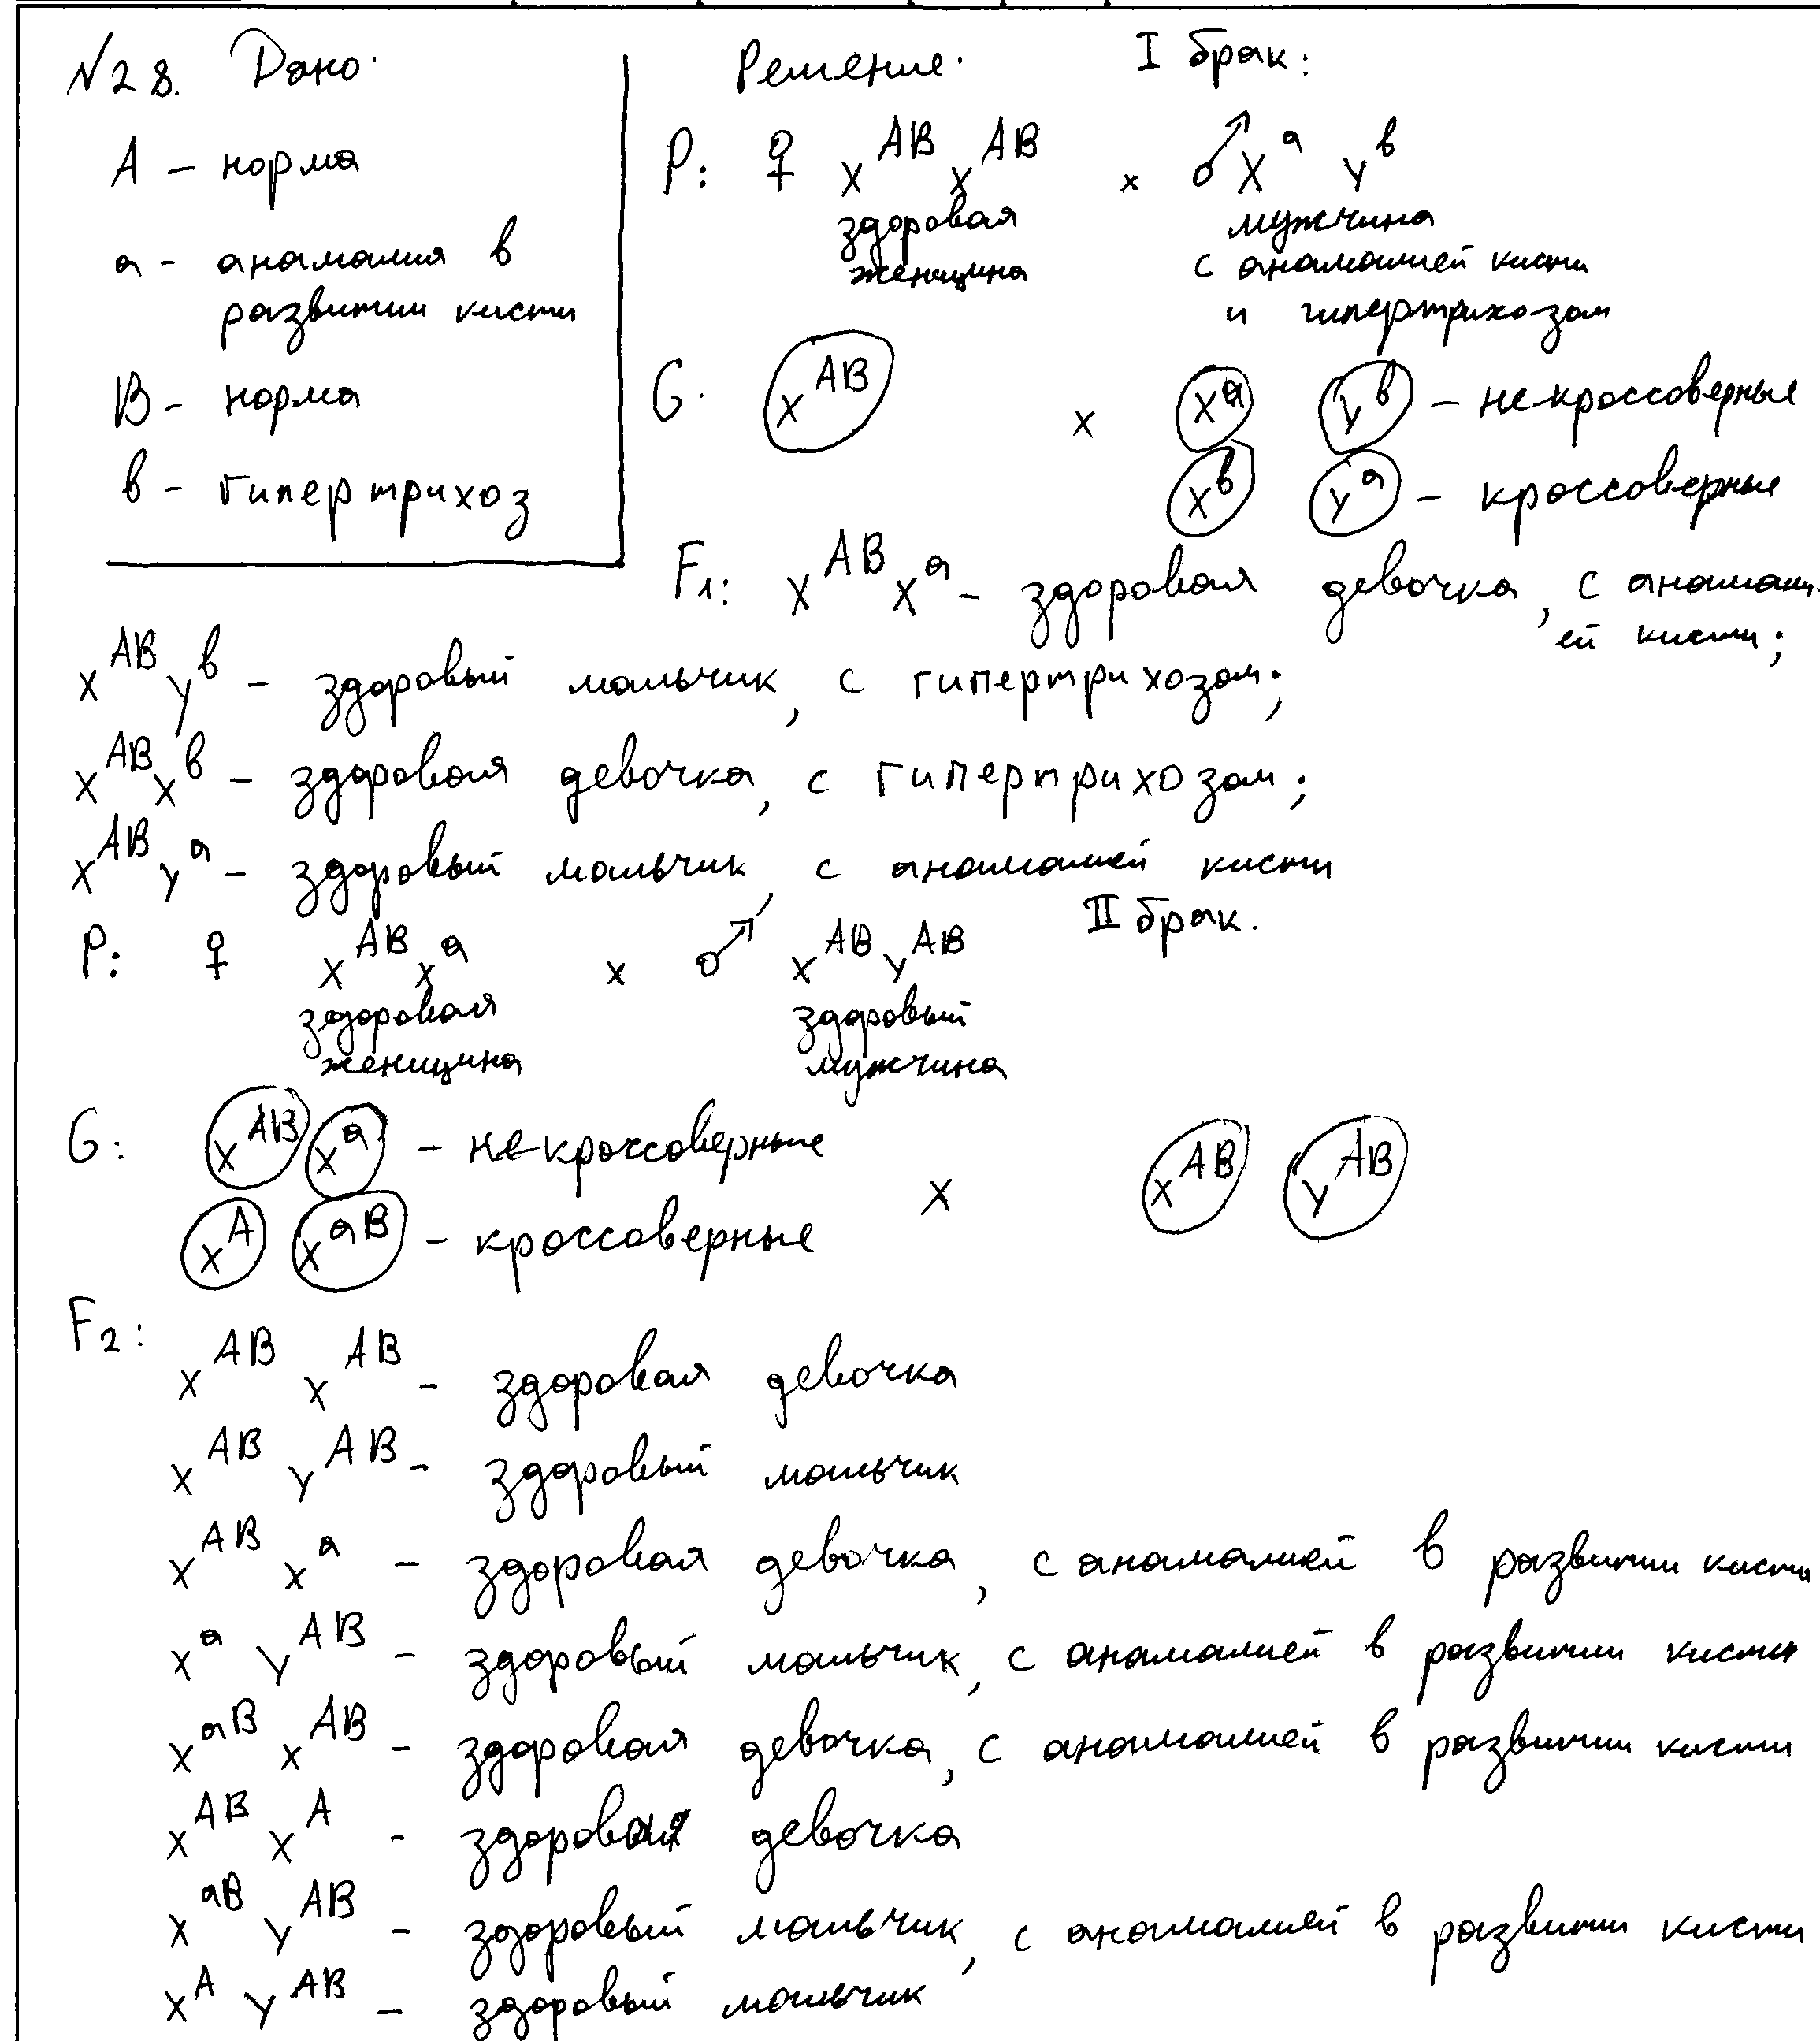 N28. Дано:
А – норма
а – анамалия в
развитии кисти
В – норма
в – гипертрихоз
Решение. I брак:
P: ♀ X^AB X^AB x ♂ X^а Y^в
здоровая мужчина
женщина с анамалией кисти
и гипертрихозом
G. X^AB x X^а Y^в – некроссоверные
X^в Y^а – кроссоверные
F1: X^AB X^а – здоровая девочка, с анамали-
ей кисти;
X^AB Y^в – здоровый мальчик, с гипертрихозом;
X^AB X^в – здоровая девочка, с гипертрихозом;
X^AB Y^а – здоровый мальчик, с анамалией кисти
II брак.
P: ♀ X^AB X^а x ♂ X^AB Y^AB
здоровая здоровый
женщина мужчина
G: X^AB X^а – некроссоверные
X^A X^аB – кроссоверные x X^AB Y^AB
F2:
X^AB X^AB – здоровая девочка
X^AB Y^AB – здоровый мальчик
X^AB X^а – здоровая девочка, с анамалией в развитии кисти
X^а Y^AB – здоровый мальчик, с анамалией в развитии кисти
X^аB X^AB – здоровая девочка, с анамалией в развитии кисти
X^AB X^A – здоровая девочка
X^аB Y^AB – здоровый мальчик, с анамалией в развитии кисти
X^A Y^AB – здоровый мальчик